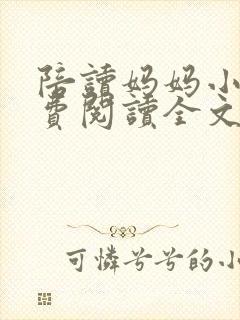 陪讀妈妈小
費閱讀全文
可憐兮兮的小